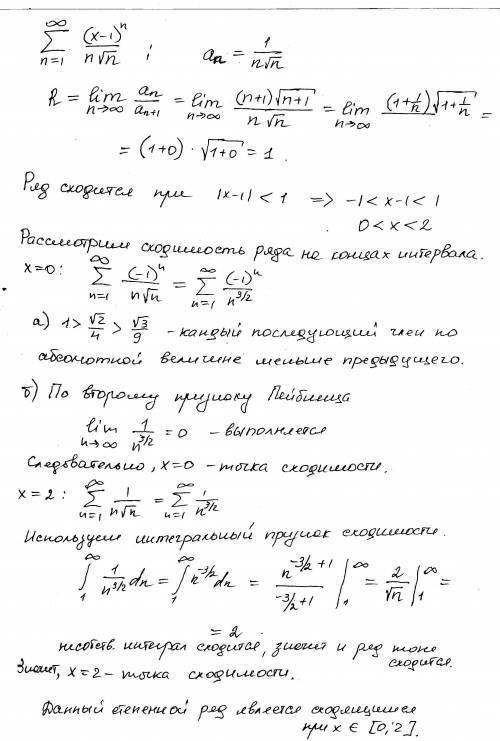 ∞∑n=1 (x-1)^n / n√n ; an = 1 / n√n
R = lim n→∞ an / an+1 = lim n→∞ (n+1)√n+1 / n√n = lim n→∞ (1+1/n)√1+1/n =
= (1+0) · √1+0 = 1.
Ряд сходится при |x-1| < 1 => -1 < x-1 < 1
0 < x < 2
Рассмотрим сходимость ряда на концах интервала.
x=0: ∞∑n=1 (-1)^n / n√n = ∞∑n=1 (-1)^n / n^3/2
а) 1 > √2/4 > √3/9 - каждый последующий член по
абсолютной величине меньше предыдущего.
б) По второму признаку Лейбница
lim n→∞ 1 / n^3/2 = 0 - выполняется
Следовательно, x=0 - точка сходимости.
x=2: ∞∑n=1 1 / n√n = ∞∑n=1 1 / n^3/2
Используем интегральный признак сходимости.
∞∫1 1 / n^3/2 dn = ∞∫1 n^-3/2 dn = n^-3/2+1 / -3/2+1 |∞1 = 2 / √n |∞1 =
= 2.
несобств. интеграл сходится, значит и ряд тоже
сходится.
Значит, x=2 - точка сходимости.
Данный степенной ряд является сходящимся
при x ∈ [0; 2].